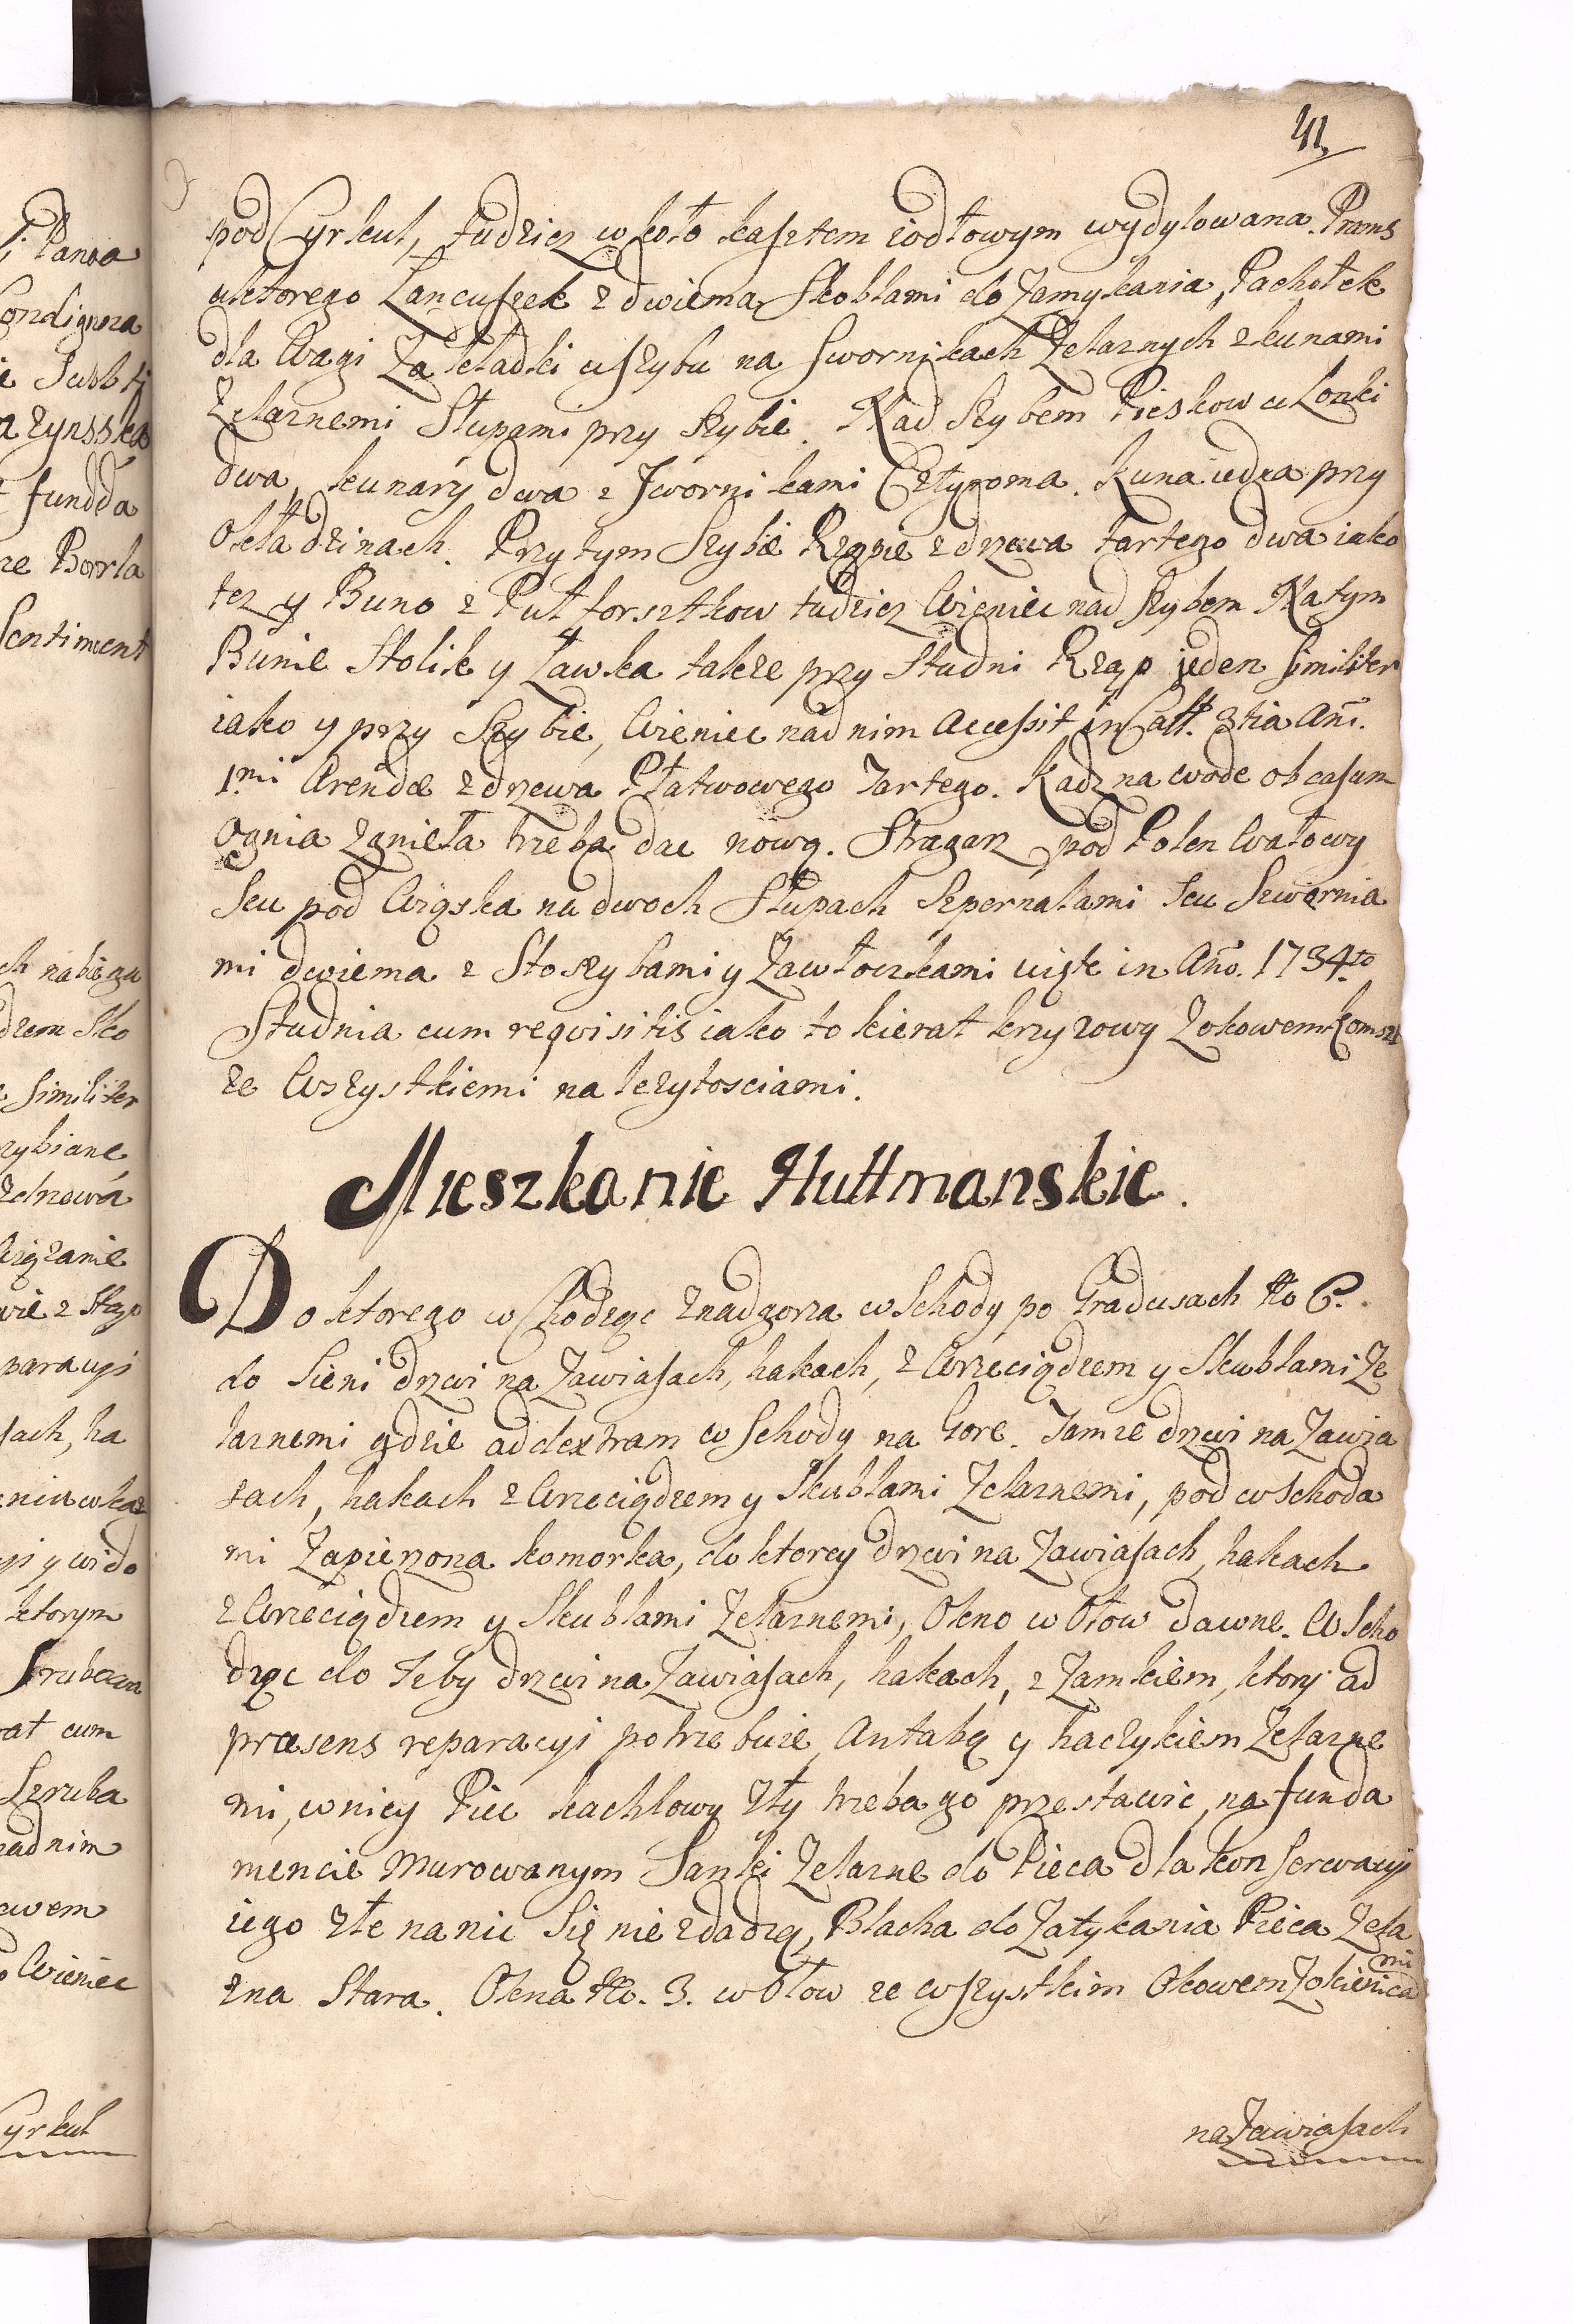 41
pod Cyrkul, tudziez w koło kasztem iodłowym wydylowana. Prems
uktorego Lancuszek z dwiema Skoblami do Zamykania, Pachołek
dla Wagi Zakładki u szybu na Swornikach Zelaznych z kunami
Zelaznemi Słupami przy Szybie. Nad Szybem Pieskow u Lonki
dwa, kunary dwa z Swornikami Cztyroma. Kuna iedna przy
Okładzinach. Przy tym Szybie Rząpie z drzewa tartego dwa iako
tez y Buno z Puł forsztkow tudziez Wieniec nad Szybem Na tym
Bunie Stolik y Ławka takze przy Studni Rząp ieden similiter
iako y przy Szybie, Wieniec nad nim Accessit in Catt. 3tia Añi.
1mi Arendæ z drzewa Płatwowego Tartego. Kadz na wode ob casum
Ognia zgnieła trzeba dac nową. Stragarz pod Polen Wałowy
seu pod Wiąska na dwoch Słupach Szpernalami seu Szwornia
mi dwiema z Stoszybami y Zawłoczkami uięte in Año. 1734to
Studnia cum reqvisitis iako to kierat krzyzowy Zokowem Komszt
ze Wszystkiemi nalezytosciami.
Mieszkanie Huttmanskie.
Do ktorego wChodząc Znadgorza wschody po Gradusach No 6.
do Sieni drzwi na Zawiasach, hakach, z Wrzeciądzem y Skublami Ze
laznemi gdzie ad dextram wschody na Gore. Tamze drzwi na Zawia
sach, hakach z Wrzeciądzem y Skublami Zelaznemi, pod wschoda
mi Zapierzona komorka, do ktorey drzwi na Zawiasach, hakach
z Wrzeciądzem y Skublami Zelaznemi, Okno w Ołow dawne. Wscho
dząc do Izby drzwi na Zawiasach, hakach, z Zamkiem, ktory ad
præsens reparacyi potrzebuie, Antabą y haczykiem Zelazne
mi, wniey Piec kachlowy Zły trzeba go przestawic, na funda
mencie Murowanym Sanki Zelazne do Pieca dla konserwacyi
iego złe na nic się nie zdadzą, Blacha do Zatykania Pieca Zela
zna Stara. Okna No. 3. w Ołow ze wszystkim Okowem Zokienica
mi
na Zawiasach